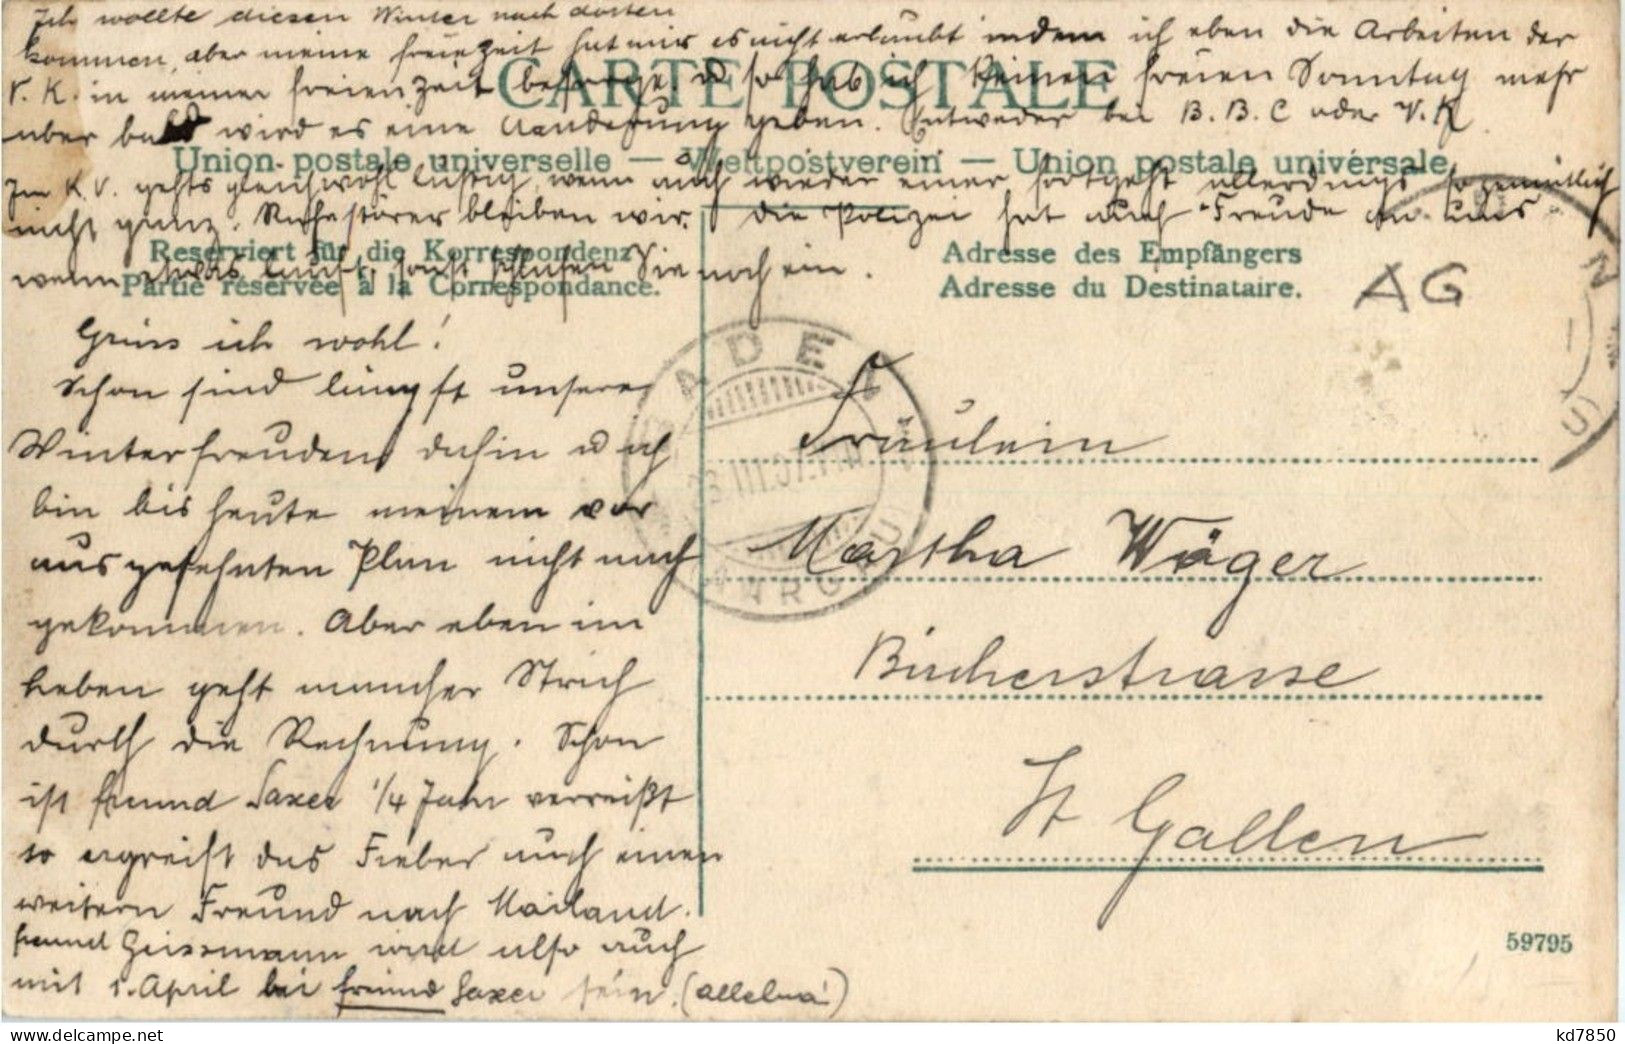 Ich wollte diesen Winter nach dorten
kommen, aber meine freie Zeit hat mir es nicht erlaubt indem ich eben die Arbeiten der
V. K. in meiner freien Zeit besorge u so hab ich keinen freien Sonntag mehr
aber bald wird es eine Aenderung geben. Entweder bei B. B. C oder V. K
Im K. V. gehts gleichwohl lustig, wenn auch wieder einer fortgeht allerdings so gemütlich
nicht ganz. Ruhestörer bleiben wir. die Polizei hat auch Freude an uns
wenn etwas läuft, sonst schlafen Sie noch ein.
CARTE POSTALE
Union postale universelle — Weltpostverein — Union postale universale
Reserviert für die Korrespondenz
Partie réservée à la Correspondance.
Adresse des Empfängers
Adresse du Destinataire.
AG
Grüss ich wohl!
Schon sind längst unsere
Winterfreuden dahin u ich
bin bis heute meinem vor
aus gefehnten Plan nicht nach
gekommen. Aber eben im
Leben geht mancher Strich
durch die Rechnung. Schon
ist freund Saxer 1/4 Jahr verreißt
so ergreift das Fieber auch einen
weitern Freund nach Mailand.
freund Geissmann wird also auch
mit 1. April bei freund Saxer sein. (alleluia!)
BADEN
23 III.07
Fräulein
Martha Wäger
Bircherstrasse
St Gallen
59795
kd7850